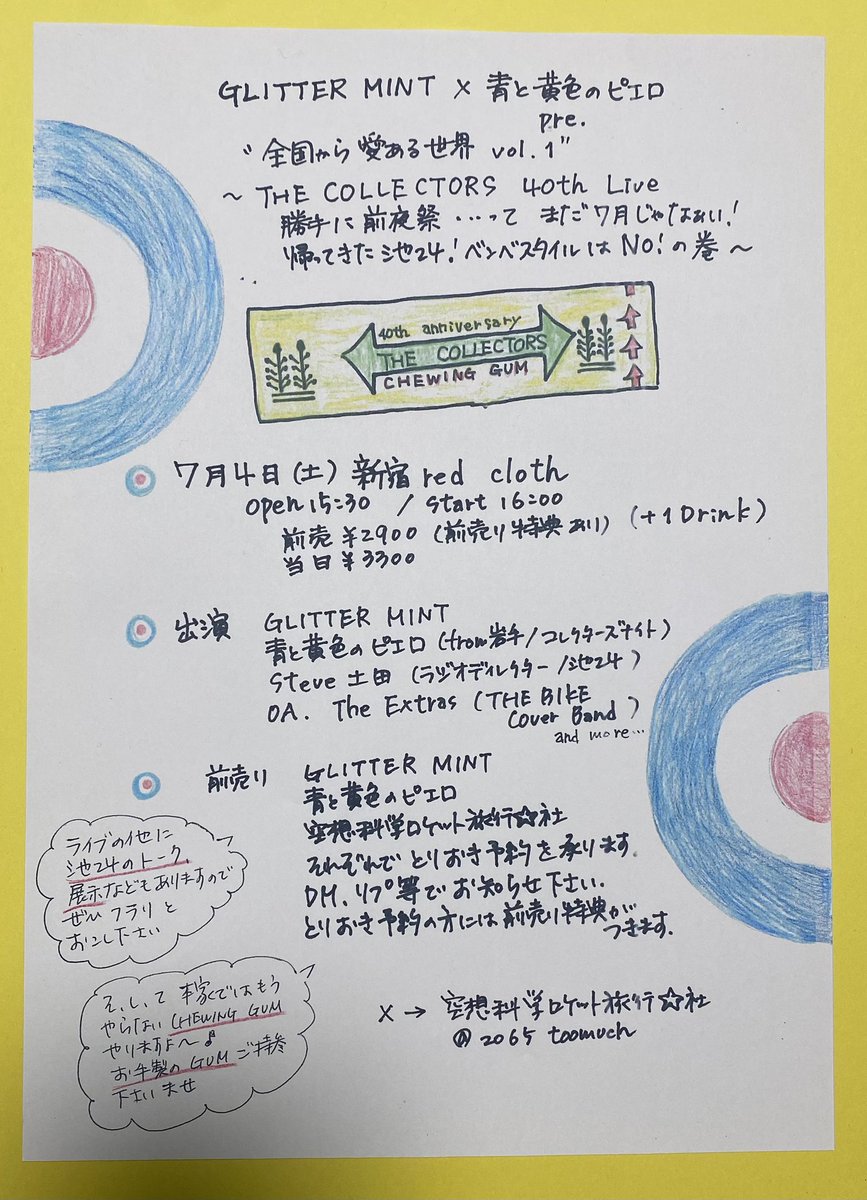 GLITTER MINT × 青と黄色のピエロ
pre.
"全国から愛ある世界 vol.1"
～ THE COLLECTORS 40th Live
勝手に前夜祭・・・って まだ7月じゃなぁい！
帰ってきた池24！ベンベスタイルはNO！の巻～
40th anniversary
THE COLLECTORS
CHEWING GUM
7月4日(土) 新宿 red cloth
open 15:30 / start 16:00
前売 ¥2900 (前売り特典あり) (+1Drink)
当日 ¥3300
出演 GLITTER MINT
青と黄色のピエロ (from岩手/コレクターズナイト)
Steve土田 (ラジオディレクター/池24)
OA. The Extras (THE BIKE
Cover Band)
and more...
前売り GLITTER MINT
青と黄色のピエロ
空想科学ロケット旅行☆社
それぞれで とりおき予約を承ります。
DM、リプ等でお知らせ下さい。
とりおき予約の方には前売り特典が
つきます。
ライブの他に
池24のトーク、
展示などもありますので
ぜひ フラリと
おこし下さい
そ、して 本家ではもう
やらない CHEWING GUM
やりますよ～♪
お手製のGUMご持参
下さいませ
X → 空想科学ロケット旅行☆社
@2065toomuch